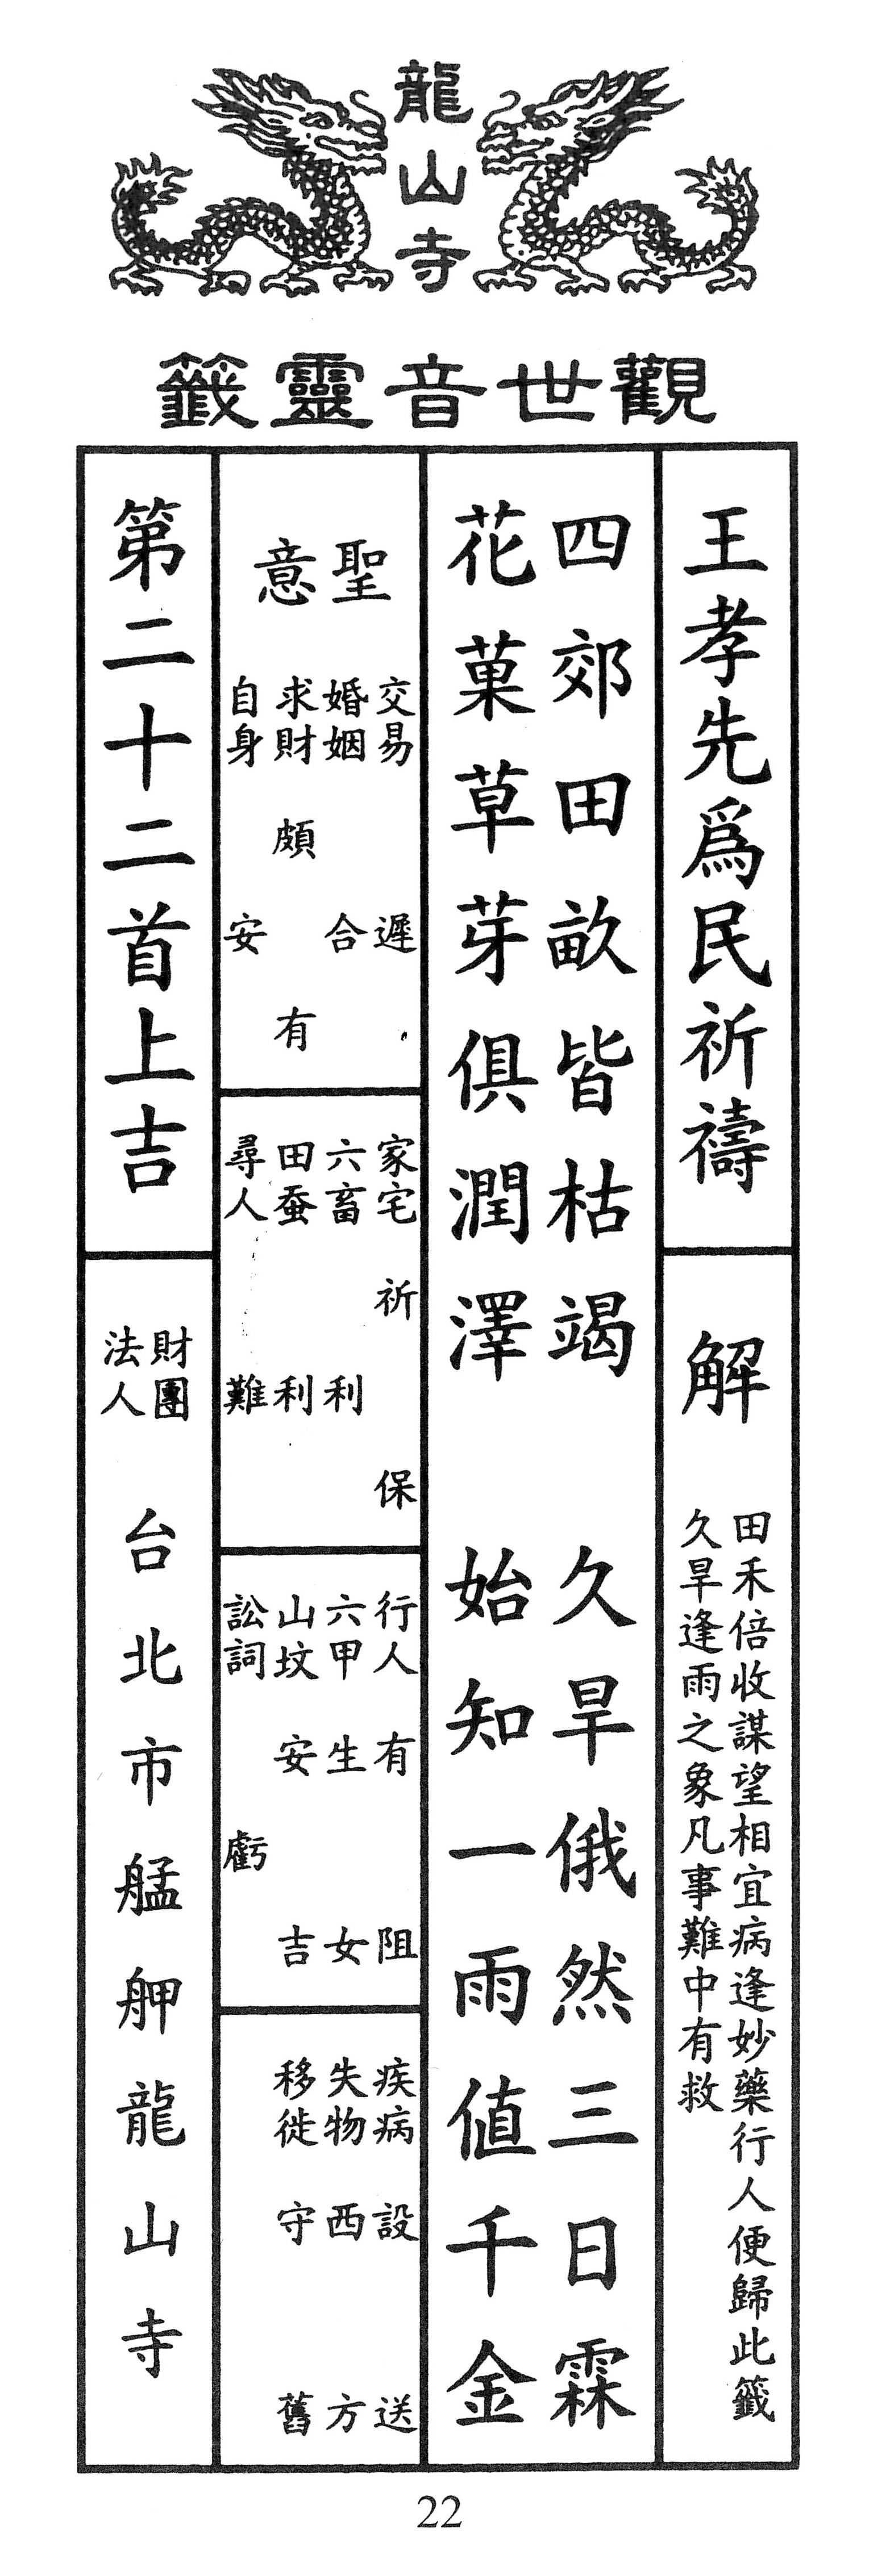 龍山寺
觀世音靈籤
王孝先爲民祈禱
解
田禾倍收謀望相宜病逢妙藥行人便歸此籤
久旱逢雨之象凡事難中有救
四郊田畝皆枯竭 久旱俄然三日霖
花菓草芽俱潤澤 始知一雨値千金
聖意
交易 遲
婚姻 合
求財 頗有
自身 安
家宅 祈保
六畜 利
田蚕 利
尋人 難
行人 有阻
六甲 生女
山坟 安吉
訟詞 虧
疾病 設送
失物 西方
移徙 守舊
第二十二首上吉
財團
法人
台北市艋舺龍山寺
22